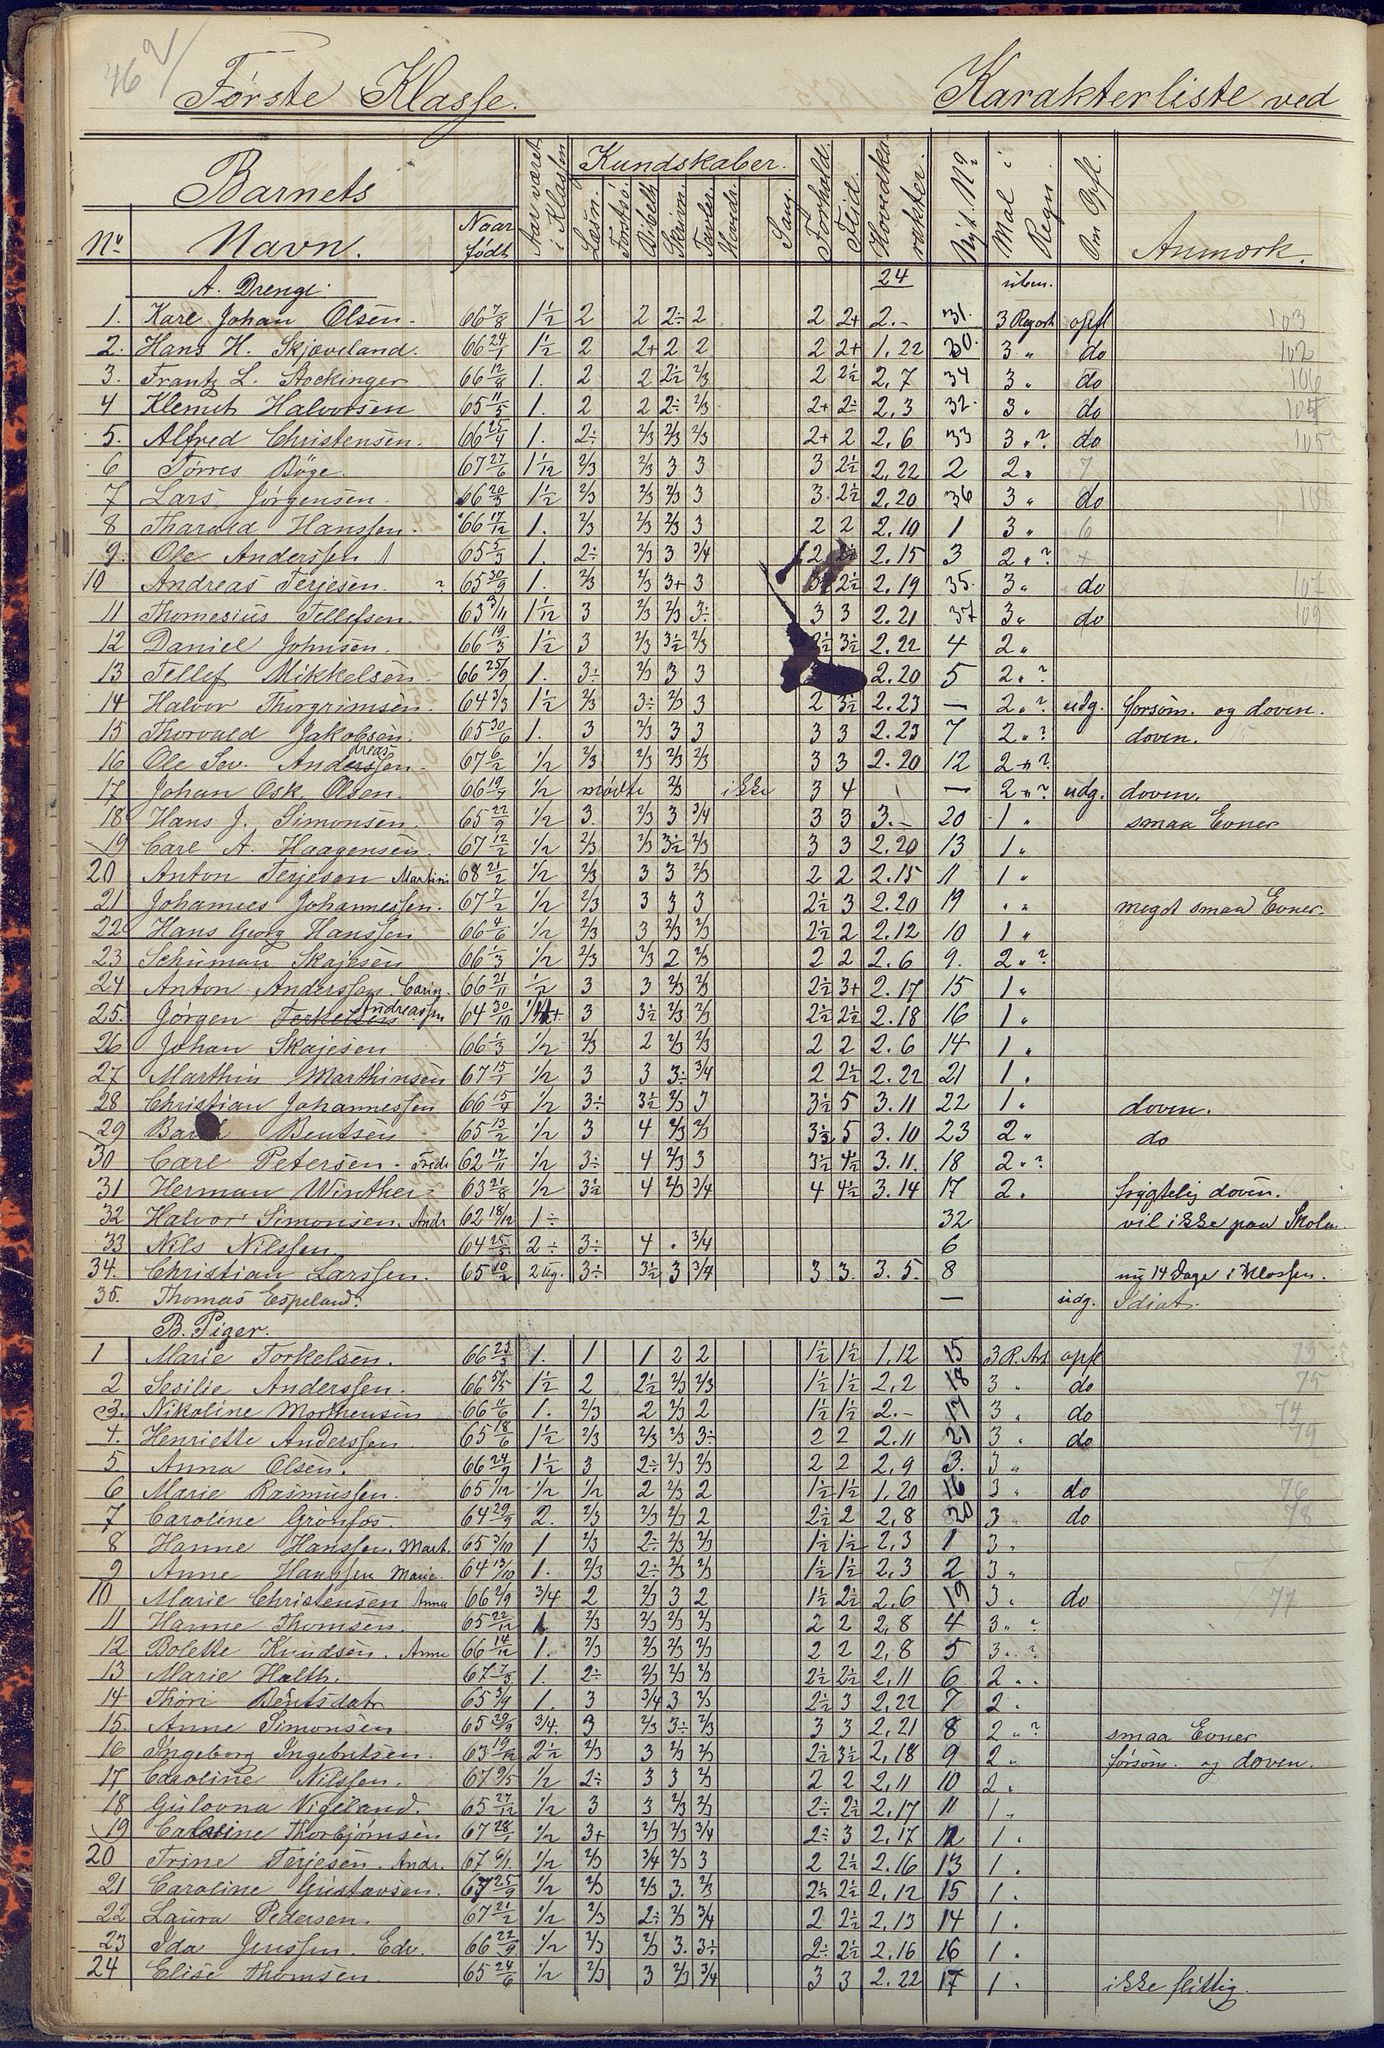 46
Første Klasse. Karakterliste ved
Barnets Kundskaber.
No. Navn. Naar født Aar været i Klassen Læsn. Forstø. Bibelh. Skrivn. Tavler. Sang Forhold. Flid. Hovedka-rakter. Nyt No. Maal i Regn. Om Opfl. Anmærk.
A. Drenge. 24
1. Karl Johan Olsen. 66 7/8 1 1/2 2 2 2÷ 2 2 2+ 2.- 31. 3 opfl 103
2. Hans H. Skjæveland. 66 24/1 1 1/2 2 2+ 2 2 2 2+ 1.22 30. 3 " do 102
3. Frantz L. Stockinger 66 12/8 1. 2 2 2 1/2 2/3 2 2 1/2 2.7 34 3 " do 106
4 Klemet Halvorsen 65 11/5 1. 2 2 2÷ 2/3 2+ 2÷ 2.3 32. 3 " do
5. Alfred Christensen. 66 25/4 1. 2÷ 2/3 2/3 2/3 2+ 2 2.6 33 3 "? do 105
6 Torres Bøge. 67 27/6 1 1/12 2/3 2/3 3 3 3 2 1/2 2.22 2 2 " 7
7 Lars Jørgensen. 66 20/3 1 1/2 2/3 2/3 2/3 3 3. 2 1/2 2.20 36 3 " do 108
8 Tharald Hanssen. 66 17/12 1. 2/3 2/3 2/3 3 2 2 2.10 1 3 " 6
9. Ole Anderssen 65 5/3 1. 2÷ 2/3 3 3/4 2 2÷ 2.15 3 2 "?
10 Andreas Terjesen. ? 65 30/9 1. 2/3 2/3 3+ 3 2 1/2 2.19 35. 3 " do 107
11 Thomesius Tellefsen. 63 3/11 1 1/12 3 2/3 2/3 3÷ 3 3 2.21 37 3 " do 109
12 Daniel Johnsen. 66 19/3 1 1/2 3 2/3 3 1/2 2/3 2 1/2 3 1/2 2.22 4 2 "
13 Tellef Mikkelsen. 66 25/9 1. 3÷ 2/3 3 3 2.20 5 2 "?
14 Halvor Thorgrimsen. 64 3/3 1 1/2 2/3 3÷ 2/3 3 2 3 1/2 2.23 — 2 "? udg. forsøm. og doven.
15 Thorvald Jakobsen. 65 30/6 1. 3 2/3 3 3 3 3 2.23 7 2 "? doven.
16 Ole Sev. Andreassen. 67 6/2 1/2 2/3 2/3 2/3 2/3 3 3 2.20 12 2 "?
17 Johan Osk. Olsen. 66 19/7 1/2 mødte 2/3 ikke 3 4 — 2 "? udg. doven.
18 Hans J. Simonsen. 65 22/9 1/2 3. 2/3 3 3/4 3 3 3.- 20 1 " smaa Evner
19 Carl A. Haagensen. 67 12/2 1/2 2/3 2/3 3 1/2 2/3 3 3 2.20 13 1 "
20 Anton Terjesen Martini 68 21/2 1/2 2/3 3 3 2/3 2 2 2.15 11 1 "
21 Johannes Johannessen. 67 7/2 1/2 2/3 3 3 3 2 1/2 3 2.20 19 " " meget smaa Evner.
22 Hans Georg Hanssen 66 4/6 1/2 2/3 3 2/3 2/3 2 1/2 2 2.12 10 1 "
23 Schuman Skajesen 66 1/3 1/2 2/3 2/3 2 2/3 2 2 2.6 9. 2 "?
24 Anton Anderssen Carin. 66 21/11 1/2 3 3 2/3 2/3 2 1/2 3+ 2.17 15 1 "
25. Jørgen Torkelsen Andreassen 64 30/10 3 3 1/2 2/3 2/3 2 1/2 2 1/2 2.18 16 1 "
26 Johan Skajesen 66 1/3 1/2 2/3 2 2/3 2/3 2 2 2.6 14 1 "
27 Marthin Marthinsen 67 15/1 1/2 3 3 3÷ 3/4 2 2 1/2 2.22 21 1 "
28 Christian Johannessen 66 15/4 1/2 3÷ 3 1/2 2/3 3 3 1/2 5 3.11 22 1 " doven.
29 Bentsen 65 13/2 1/2 3 4 2/3 2/3 3 1/2 5 3.10 23 2 " do
30 Carl Petersen. Fredr 62 17/11 1/2 3÷ 4 2/3 3 3 1/2 4 1/2 3.11. 18 2 "?
31 Herman Winther 63 21/8 1/2 3 1/2 4 2/3 3/4 4 4 1/2 3.14 17 2 " frygtelig doven.
32 Halvor Simonsen. Andr. 62 18/12 1÷ 32 vil ikke paa Skolen.
33 Nils Nilssen 64 25/5 2÷ 3÷ 4 . 3/4 6
34. Christian Larssen. 65 10/2 2 Ug. 3÷ 3 1/2 3 3/4 3 3. 3.5. 8 ny 14 Dage i Klassen.
35. Thomas Espeland. — udg. Idiot.
B. Piger.
1 Marie Torkelsen. 66 23/3 1. 1 1 2 2 1 1/2 1 1/2 1.12 15 3 R. Art opfl 73
2 Sesilie Anderssen. 66 5/5 1 1/2 2 2 1/2 2/3 2/3 1 1/2 1 1/2 2.2 18 3 " do 75
3. Nikoline Morthensen 66 11/6 1. 2/3 2 2/3 2 1 1/2 1 1/2 2.- 17 3 " do 74
4. Henriette Anderssen. 65 18/6 1 1/2 2/3 2/3 2/3 3÷ 2 2 2.11 21 3 " do 79
5 Anna Olsen. 66 24/9 1 1/2 3 2÷ 2/3 2/3 2 2 2.9 3. 3 "
6 Marie Rasmussen. 65 1/12 1/2 1/2 2 2/3 2 1 1/2 1 1/2 1.20 16 3 " do 76
7 Caroline Grönfos. 64 29/9 2. 2/3 2/3 2/3 2 2 1/2 2 2.8 20 3 " do 78
8 Hanne Hanssen. Mart. 65 3/10 1 2/3 2÷ 2/3 2/3 1 1/2 1 1/2 2.3 1 3 "
9 Anne Hanssen Marie. 64 13/10 1. 2/3 2÷ 2/3 2/3 1 1/2 1 1/2 2.3 2 3 "
10 Marie Christensen Anna 66 2/9 3/4 2 2/3 3 2 1 1/2 2 1/2 2.6 19 3 " do 77
11 Hanne Thomsen. 65 22/12 1. 2/3 2/3 2/3 2/3 2 2 2.8 4 3 "?
12 Bolette Knudsen. Anne 66 14/12 1. 2/3 2/3 2/3 2/3 2 2 2.8 5 3 "?
13 Marie Holth. 67 7/3 1. 2÷ 2/3 2/3 2/3 2 1/2 2 1/2 2.11 6 2 "
14 Thori Bentsdatr 65 5/9 1. 3 3/4 3 2/3 2 1/2 3 2.22 7 2 "
15. Anne Simonsen 65 29/9 3/4. 3 2/3 3÷ 2/3 3 3 2.21 8 2 "? smaa Evner
16 Ingeborg Ingebretsen. 63 19/12 2 1/2 2/3 3 2/3 2/3 2 1/2 3 1/2 2.18 9 2 " forsøm. og doven.
17 Caroline Nilssen. 67 9/5 1/2 2÷ 3 3 2/3 2 2 2.11 10 2 "
18 Gulovna Vigeland. 65 27/12 1/2 3 3 2/3 2/3 2÷ 2 1/2 2.17 11 1 "
19 Thorbjørnsen 67 28/1 1/2 3+ 2/3 2/3 3/4 2÷ 3 2.17 12 1 "
20 Trine Terjesen. Andr. 67 6/1. 1/2 2/3 3/4 2/3 3 2 2 1/2 2.16 13 1 "
21 Caroline Gustavsen. 67 25/9 1/2 2/3 2/3 3. 2/3 2 1/2 2 1/2 2.12 15 1 "
22 Laura Pedersen. 67 21/2 1/2 2/3 2÷ 2/3 3/4 2 2 1/2 2.13 14 1 "
23 Ida Jenssen. Edv. 66 22/9 1/2 2/3 2/3 3. 3÷ 2÷ 2 1/2 2.16 16 1 "
24 Elise Thomsen. 65 24/6 1/2 2/3 3 2/3 3/4 3 3 2.22 17 1 " ikke flittig.